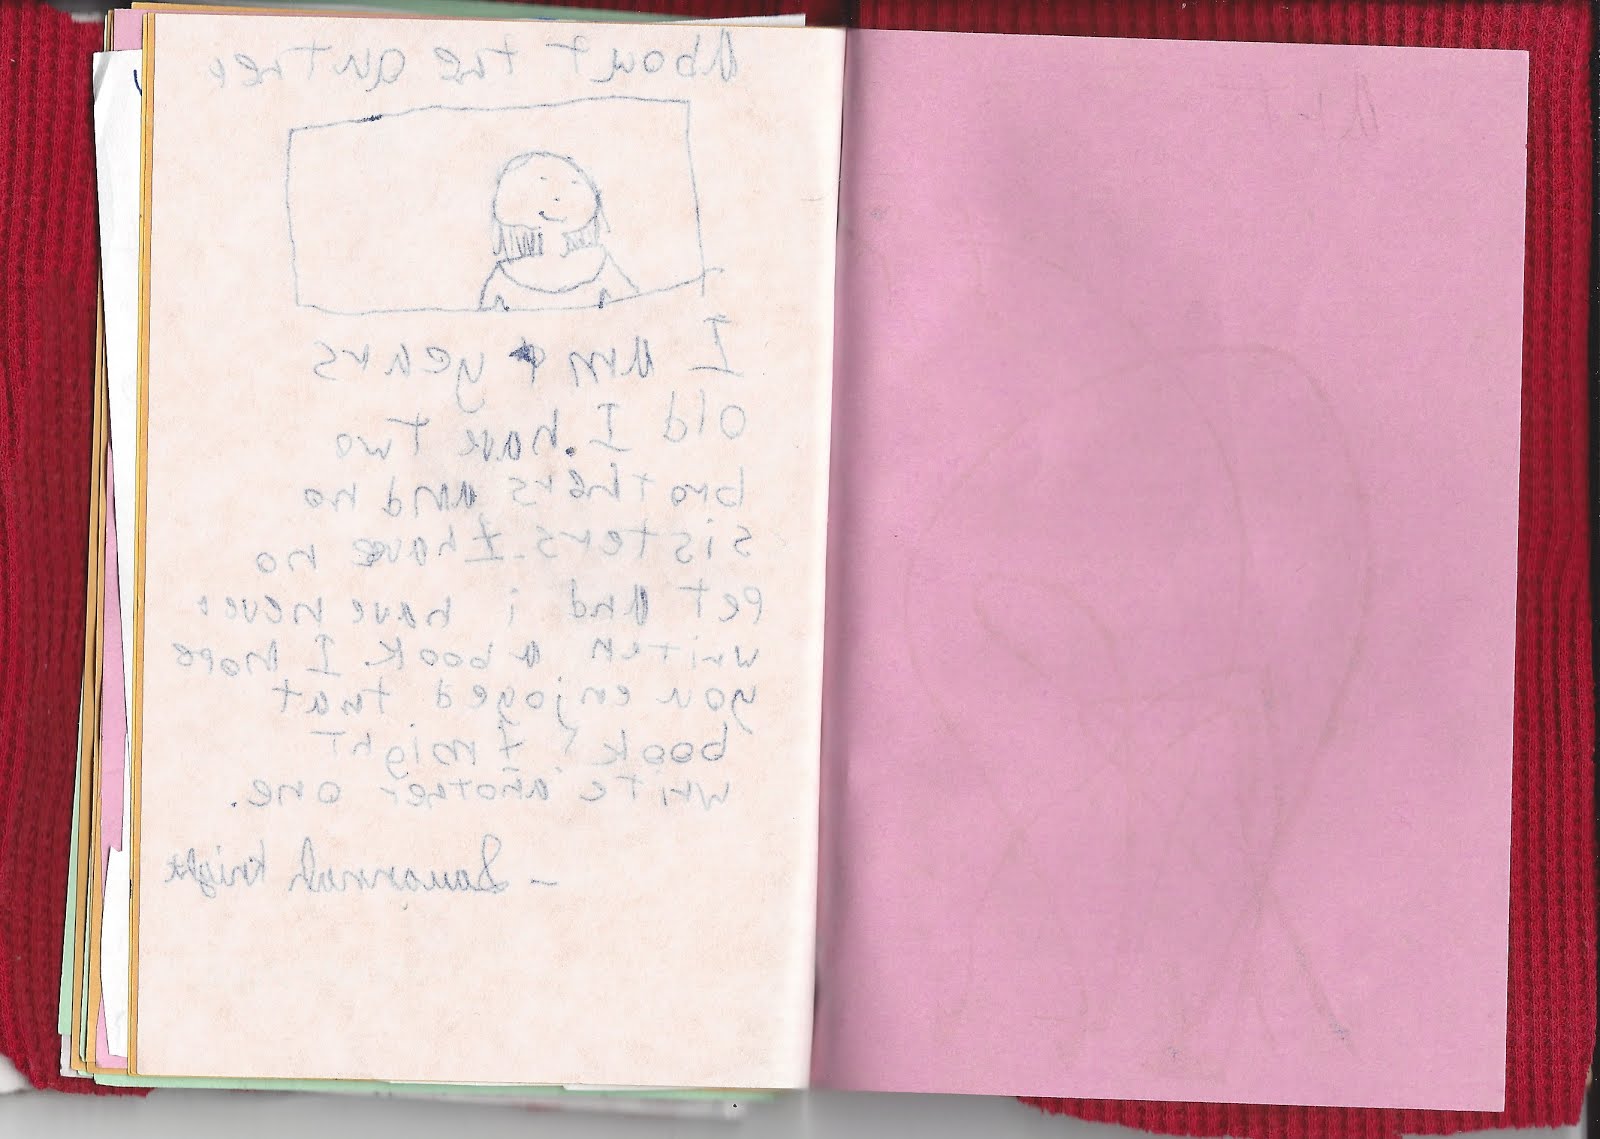 About the auther
I am years
old I. have two
brothers and no
sisters. I have no
Pet and i have never
writen a book. I hope
you enjoyed that
book? I might
write another one.
- Savannah Knight